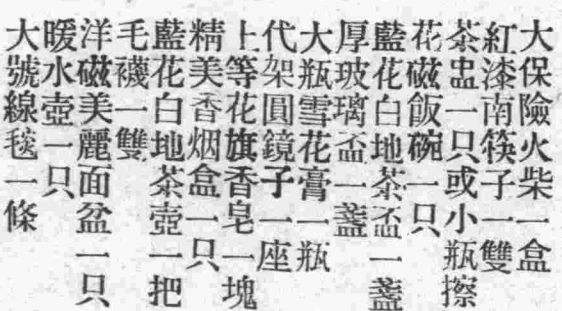 大保險火柴一盒
紅漆南筷子一雙
茶盅一只或小瓶擦
花磁飯碗一只
藍花白地茶盃一盞
厚玻璃盃一盞
大瓶雪花膏一瓶
代架圓鏡子一座
上等花旗香皂一塊
精美香烟盒一只
藍花白地茶壺一把
毛襪一雙
洋磁美麗面盆一只
暖水壺一只
大號線毯一條